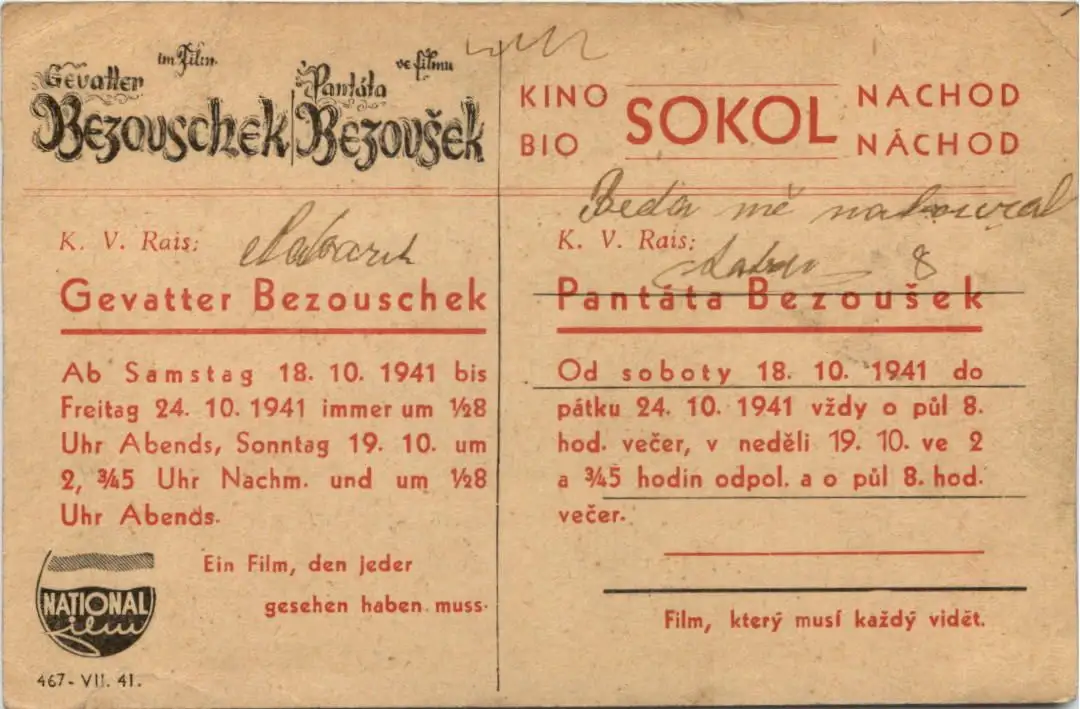 im Film
Gevatter
Bezouschek
ve filmu
Pantáta
Bezoušek
KINO
BIO
SOKOL
NACHOD
NÁCHOD
K. V. Rais:
Gevatter Bezouschek
Ab Samstag 18. 10. 1941 bis
Freitag 24. 10. 1941 immer um ½8
Uhr Abends, Sonntag 19. 10. um
2, ¾5 Uhr Nachm. und um ½8
Uhr Abends.
Ein Film, den jeder
gesehen haben muss.
NATIONAL
film
467 - VII. 41.
mě
K. V. Rais:
8
Pantáta Bezoušek
Od soboty 18. 10. 1941 do
pátku 24. 10. 1941 vždy o půl 8.
hod. večer, v neděli 19. 10. ve 2
a ¾5 hodin odpol. a o půl 8. hod.
večer.
Film, který musí každý vidět.